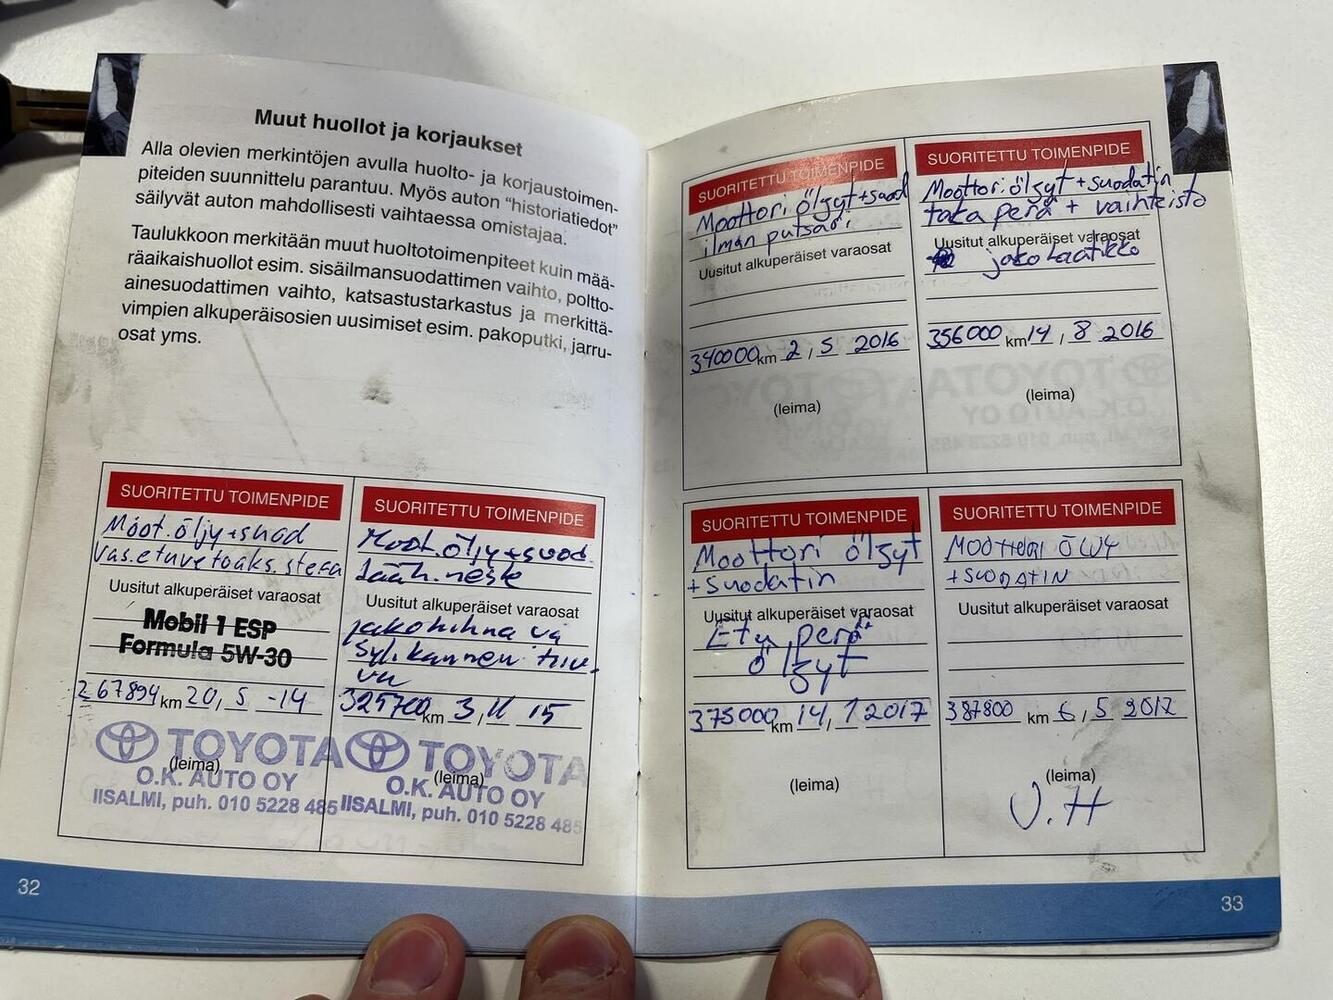 Muut huollot ja korjaukset
Alla olevien merkintöjen avulla huolto- ja korjaustoimen-
piteiden suunnittelu parantuu. Myös auton "historiatiedot"
säilyvät auton mahdollisesti vaihtaessa omistajaa.
Taulukkoon merkitään muut huoltotoimenpiteet kuin mää-
räaikaishuollot esim. sisäilmansuodattimen vaihto, poltto-
ainesuodattimen vaihto, katsastustarkastus ja merkittä-
vimpien alkuperäisosien uusimiset esim. pakoputki, jarru-
osat yms.
SUORITETTU TOIMENPIDE
Moot.öljy+suod
Vas.etuvetoaks.
Uusitut alkuperäiset varaosat
Mobil 1 ESP
Formula 5W-30
267894 km 20, 5 -14
TOYOTA
(leima)
O.K. AUTO OY
IISALMI, puh. 010 5228 485
SUORITETTU TOIMENPIDE
Moot.öljy+suod.
Jääh.neste
Uusitut alkuperäiset varaosat
jakohihna
Syl.kannen
325700 km 3, 11 15
TOYOTA
(leima)
O.K. AUTO OY
IISALMI, puh. 010 5228 485
32
SUORITETTU TOIMENPIDE
Moottori öljyt+suod
ilman putsari
Uusitut alkuperäiset varaosat
340000 km 2, 5 2016
(leima)
SUORITETTU TOIMENPIDE
Moottori öljyt+suodatin
taka perä + vaihteisto
Uusitut alkuperäiset varaosat
jakolaatikko
356000 km 14, 8 2016
(leima)
SUORITETTU TOIMENPIDE
Moottori öljyt
+suodatin
Uusitut alkuperäiset varaosat
Etu perä
öljyt
375000 km 14, 1 2017
(leima)
SUORITETTU TOIMENPIDE
MOOTTORI ÖLJY
+SUODATIN
Uusitut alkuperäiset varaosat
387800 km 6, 5 2017
(leima)
V.H
33